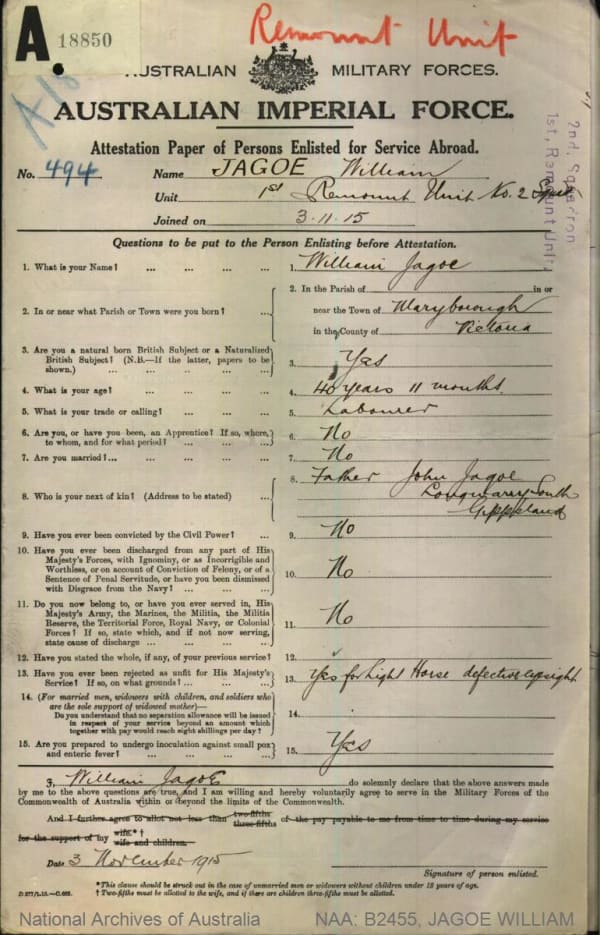 A 18850
Remount Unit
AUSTRALIAN MILITARY FORCES.
AUSTRALIAN IMPERIAL FORCE.
Attestation Paper of Persons Enlisted for Service Abroad.
No. 494 Name JAGOE William
Unit 1st Remount Unit No. 2 Sqd
Joined on 3.11.15
2nd. Squadron
1st. Remount Unit.
Questions to be put to the Person Enlisting before Attestation.
1. What is your Name? ... ... ... ... 1. William Jagoe
2. In or near what Parish or Town were you born? ... 2. In the Parish of in or
near the Town of Maryborough
in the County of Victoria
3. Are you a natural born British Subject or a Naturalized
British Subject? (N.B.—If the latter, papers to be
shown.) ... ... ... ... ... 3. Yes
4. What is your age? ... ... ... ... 4. 40 years 11 months.
5. What is your trade or calling? ... ... ... 5. Labourer
6. Are you, or have you been, an Apprentice? If so, where,
to whom, and for what period? ... ... ... 6. No
7. Are you married? ... ... ... ... ... 7. No
8. Who is your next of kin? (Address to be stated) ... 8. Father John Jagoe
Longwarry South
Gippsland
9. Have you ever been convicted by the Civil Power? ... 9. No
10. Have you ever been discharged from any part of His
Majesty's Forces, with Ignominy, or as Incorrigible and
Worthless, or on account of Conviction of Felony, or of a
Sentence of Penal Servitude, or have you been dismissed
with Disgrace from the Navy? ... ... ... 10. No
11. Do you now belong to, or have you ever served in, His
Majesty's Army, the Marines, the Militia, the Militia
Reserve, the Territorial Force, Royal Navy, or Colonial
Forces? If so, state which, and if not now serving,
state cause of discharge ... ... ... ... 11. No
12. Have you stated the whole, if any, of your previous service? 12.
13. Have you ever been rejected as unfit for His Majesty's
Service? If so, on what grounds? ... ... ... 13. Yes for Light Horse defective eyesight
14. (For married men, widowers with children, and soldiers who
are the sole support of widowed mother)—
Do you understand that no separation allowance will be issued
in respect of your service beyond an amount which
together with pay would reach eight shillings per day? 14.
15. Are you prepared to undergo inoculation against small pox
and enteric fever? ... ... ... ... 15. Yes
I, William Jagoe do solemnly declare that the above answers made
by me to the above questions are true, and I am willing and hereby voluntarily agree to serve in the Military Forces of the
Commonwealth of Australia within or beyond the limits of the Commonwealth.
And I further agree to allot not less than two-fifths three-fifths of the pay payable to me from time to time during my service
for the support of my wife.*† wife and children.
Date 3 November 1915
Signature of person enlisted.
D.277/1.15.—C.608.
* This clause should be struck out in the case of unmarried men or widowers without children under 18 years of age.
† Two-fifths must be allotted to the wife, and if there are children three-fifths must be allotted.
National Archives of Australia NAA: B2455, JAGOE WILLIAM